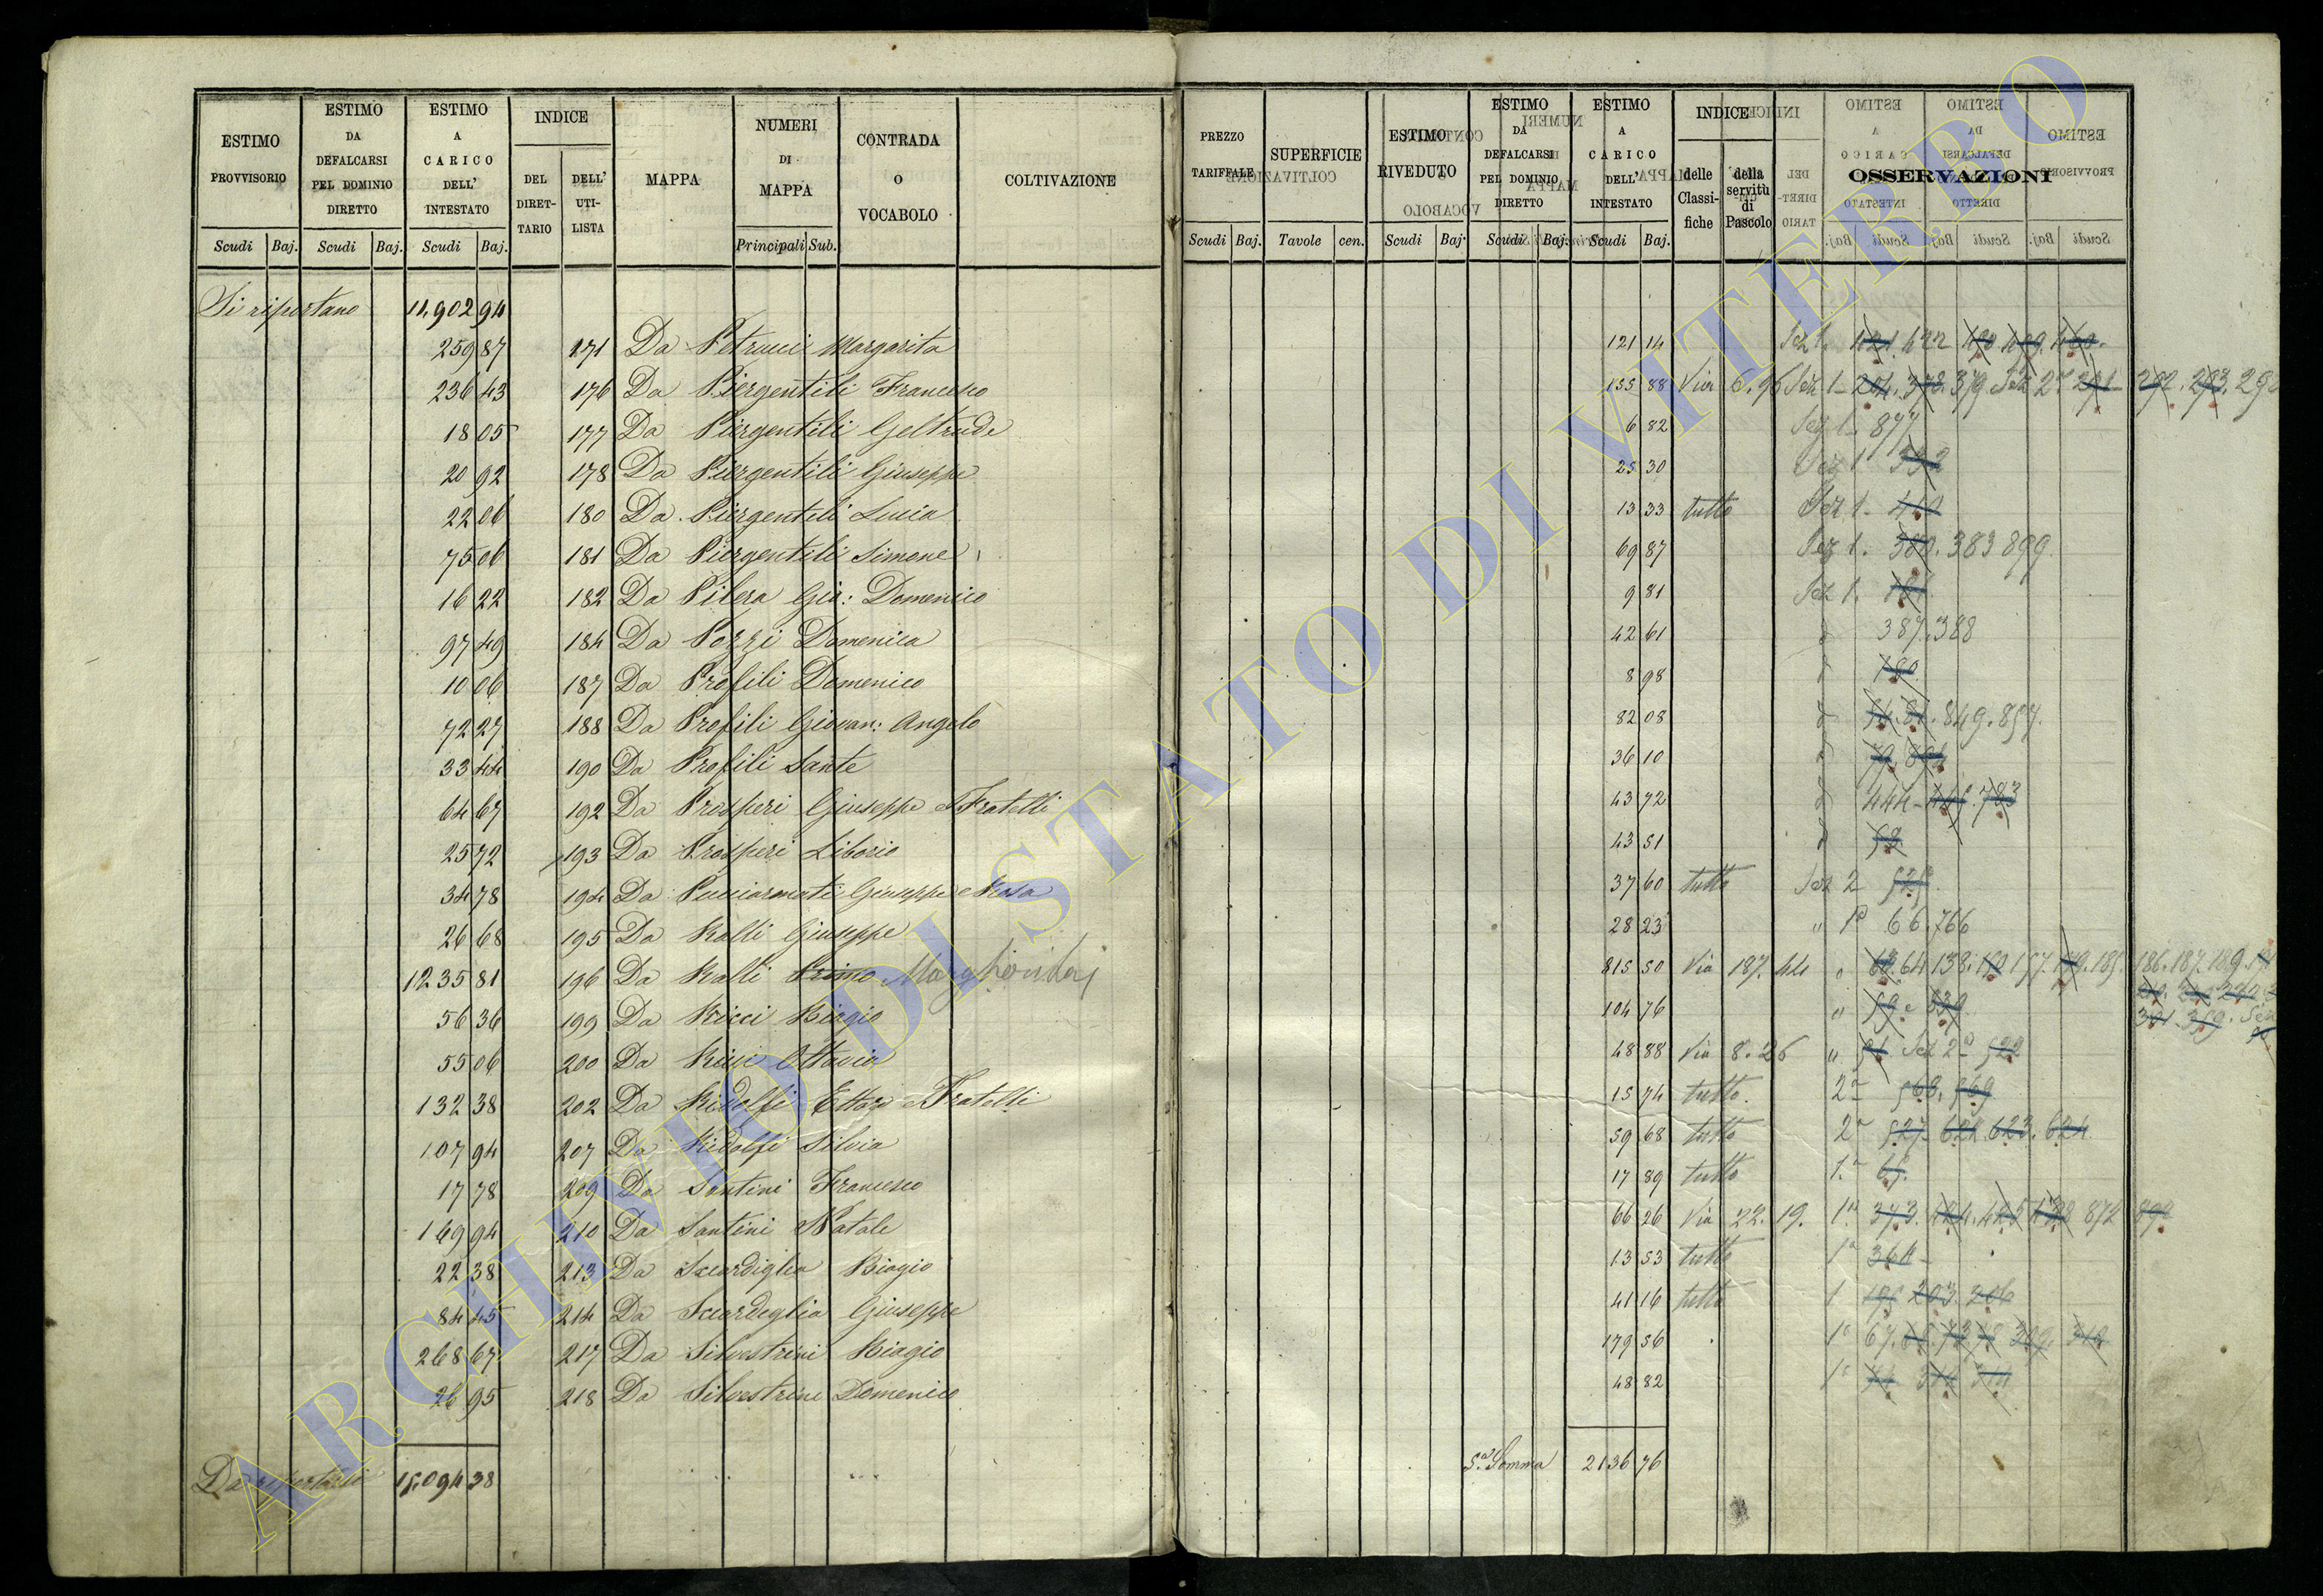 ESTIMO PROVVISORIO
ESTIMO DA DEFALCARSI PEL DOMINIO DIRETTO
ESTIMO A CARICO DELL' INTESTATO
INDICE
DEL DIRET-TARIO
DELL' UTI-LISTA
MAPPA
NUMERI DI MAPPA
CONTRADA O VOCABOLO
COLTIVAZIONE
Scudi Baj. Scudi Baj. Scudi Baj. Principali Sub.
Si riportano 11,902 94
259 87 171 Da Petrucci Margarita
236 43 176 Da Piergentili Francesco
18 05 177 Da Piergentili Geltrude
20 92 178 Da Piergentili Giuseppe
22 06 180 Da Piergentili Lucia
75 06 181 Da Piergentili Simone
16 22 182 Da Pilera Gio: Domenico
97 49 184 Da Pozzi Domenica
10 06 187 Da Profili Domenico
72 27 188 Da Profili Giovan: Angelo
33 44 190 Da Profili Sante
64 67 192 Da Prosperi Giuseppe e Fratelli
25 72 193 Da Prosperi Liborio
34 78 194 Da Pucciarmati Giuseppe e Rosa
26 68 195 Da Ralli Giuseppe
1235 81 196 Da Ralli Primo
56 36 199 Da Ricci Biagio
55 06 200 Da Ricci Ottavia
132 38 202 Da Ridolfi Ettore e Fratelli
107 94 207 Da Ridolfi Silvia
17 78 209 Da Santini Francesco
169 94 210 Da Santini Natale
22 38 213 Da Scardiglia Biagio
84 45 214 Da Scardiglia Giuseppe
268 67 217 Da Silvestrini Biagio
26 95 218 Da Silvestrini Domenico
Da riportarsi 15,094 38
PREZZO TARIFFALE
SUPERFICIE
ESTIMO RIVEDUTO
ESTIMO DA DEFALCARSI PEL DOMINIO DIRETTO
ESTIMO A CARICO DELL' INTESTATO
INDICE
delle Classi-fiche
della servitù di Pascolo
OSSERVAZIONI
Scudi Baj. Tavole cen. Scudi Baj. Scudi Baj. Scudi Baj.
121 14 Sez 1.
155 88 Via 6.96 Sez 1
6 82 Sez 1. 877
25 30 Sez 1 332
13 33 tutto Sez 1 410
69 87 Sez 1. 380. 383 899.
9 81 Sez 1.
42 61 387.388
8 98 180
82 08 849.857.
36 10
43 72 444
43 51 58
37 60 tutto Sez 2
28 23 " 1ª 66.766
815 50 Via 187.44
104 76 " 59 e 539
48 88 Via 8.26 Sez 2ª 522
15 74 tutto. 2ª 568. 569
59 68 tutto 2ª 527. 623. 624.
17 89 tutto 1ª
66 26 Via 22.19. 1ª 373. 872 892
13 53 tutto 1ª 364
41 16 tutto 1 195 203. 206
179 56 1ª 67.
48 82 1ª
5ª Somma 2136 76
ARCHIVIO DI STATO DI VITERBO